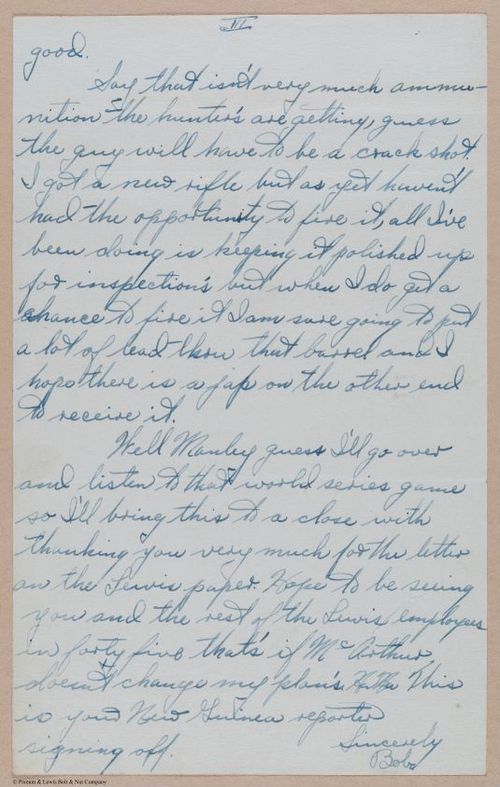 III
good.
Say that isn't very much ammu-
nition the hunter's are getting, guess
the guy will have to be a crack shot.
I got a new rifle but as yet haven't
had the opportunity to fire it, all I've
been doing is keeping it polished up
for inspection's but when I do get a
chance to fire it I am sure going to put
a lot of lead thru that barrel and I
hope there is a jap on the other end
to receive it.
Well Manley guess I'll go over
and listen to that world series game
so I'll bring this to a close with
thanking you very much for the letter
an the Lewis paper. Hope to be seeing
you and the rest of the Lewis employees
in forty five that's if McArthur
doesn't change my plan's. This
is your New Guinea reporter
signing off.
Sincerely
Bob
© Pixeum & Lewis Bolt & Nut Company